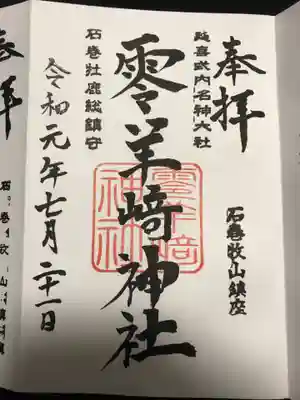 奉拝
石巻牧山鎮座
延喜式内名神大社
零羊崎神社
零羊崎
神社
石巻牡鹿総鎮守
令和元年七月二十一日
拝